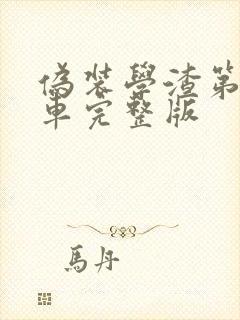 偽裝學渣第
車完整版
馬丹